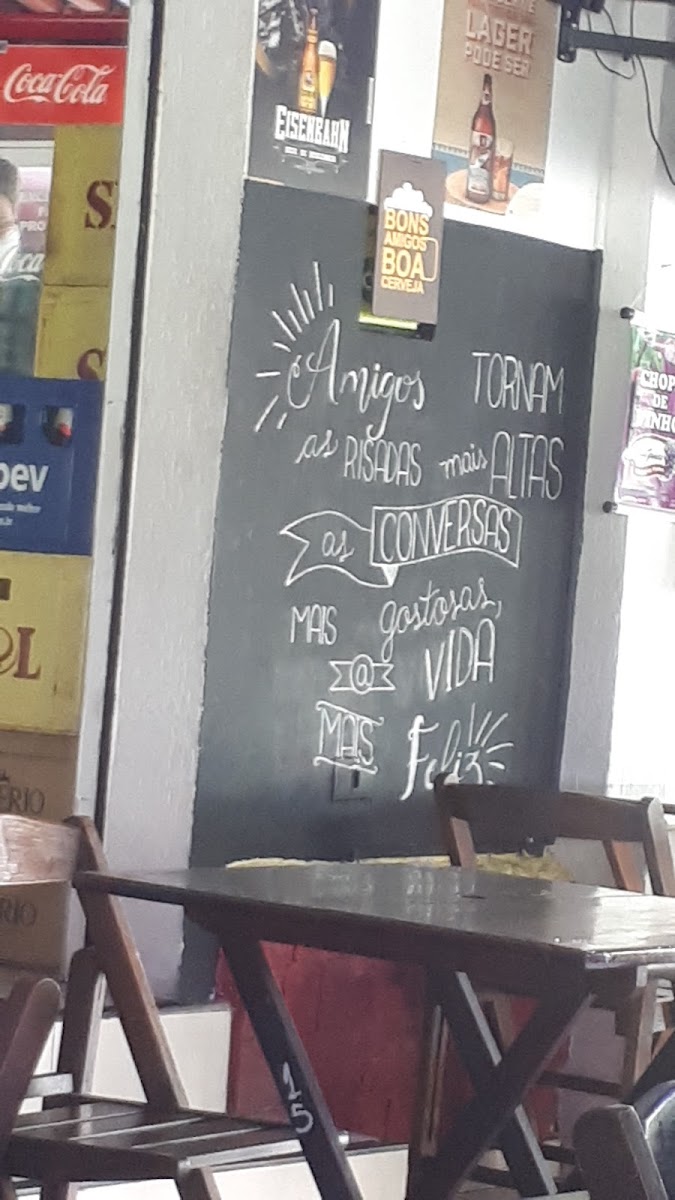 Coca-Cola
EISENBAHN
LAGER
PODE SER
BONS
AMIGOS
BOA
CERVEJA
Amigos TORNAM
as RISADAS mais ALTAS
as CONVERSAS
MAIS gostosas,
@ VIDA
MAIS Feliz
CHOPP
DE
VINHO
15